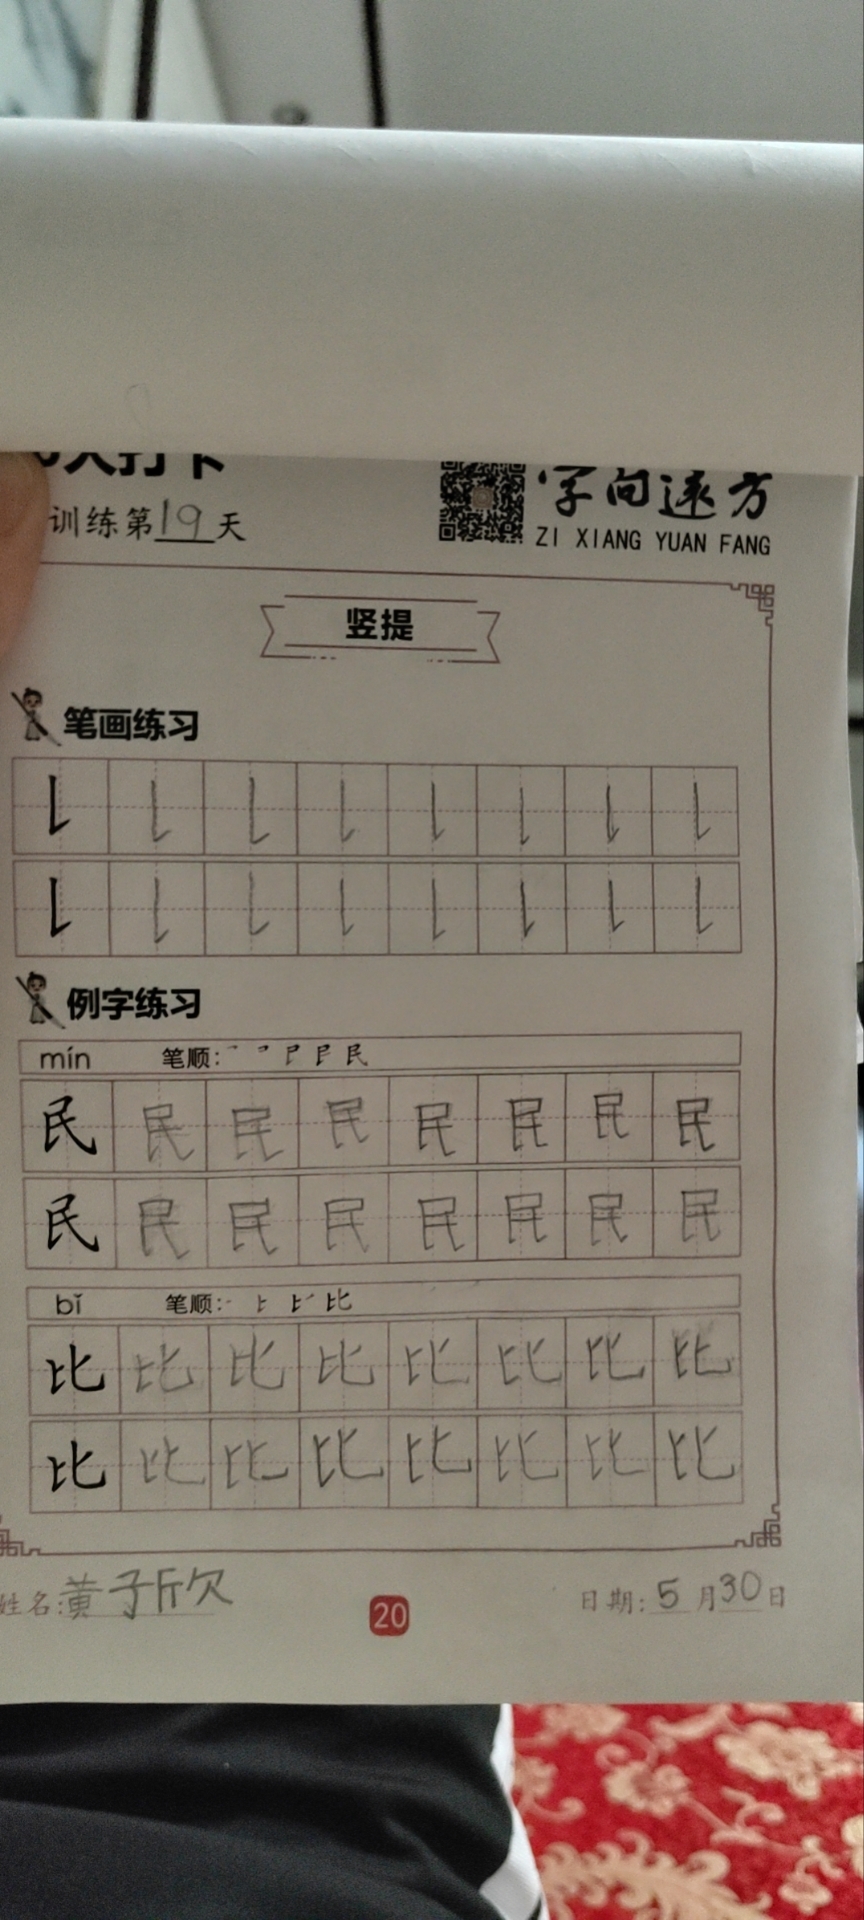 天打卡
字向远方
训练第19天
ZI XIANG YUAN FANG
竖提
笔画练习
例字练习
mín 笔顺:
民 民 民 民 民 民 民 民
民 民 民 民 民 民 民 民
bǐ 笔顺:
比 比 比 比 比 比 比 比
比 比 比 比 比 比 比 比
姓名:黄子欣
20
日期:5月30日